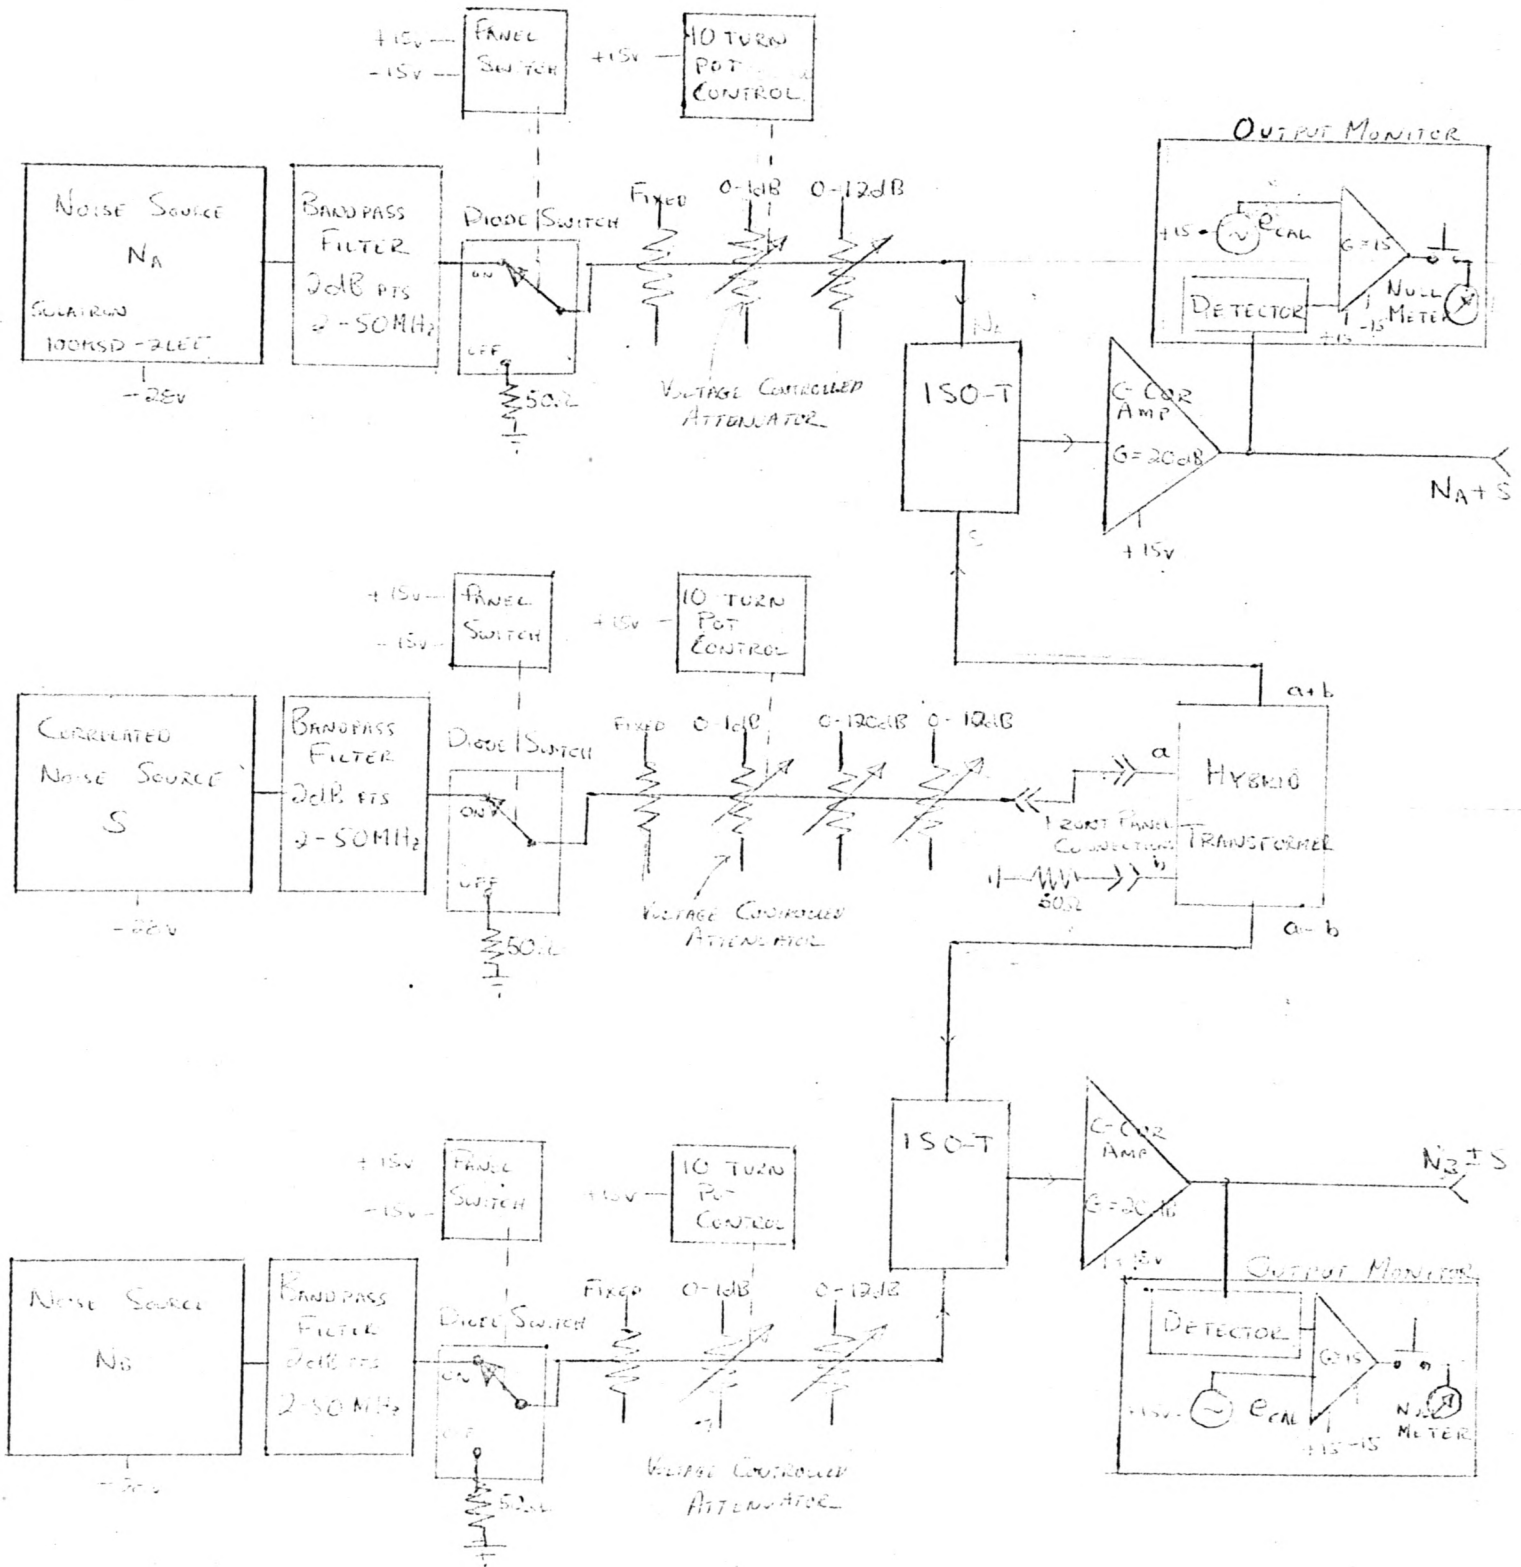 +15v
-15v
PANEL
SWITCH
+15v
10 TURN
POT
CONTROL
OUTPUT MONITOR
NOISE SOURCE
NA
100MSD-
-28v
BANDPASS
FILTER
2dB PTS
2-50MHz
DIODE SWITCH
ON
OFF
50Ω
FIXED
0-1dB
0-12dB
VOLTAGE CONTROLLED
ATTENUATOR
ISO-T
C-COR
AMP
G=20dB
+15v
+15
eCAL
G=15
DETECTOR
+15 -15
NULL
METER
NA+S
S
+15v
-15v
PANEL
SWITCH
+15v
10 TURN
POT
CONTROL
CORRELATED
NOISE SOURCE
S
-28v
BANDPASS
FILTER
2dB PTS
2-50MHz
DIODE SWITCH
ON
OFF
50Ω
FIXED
0-1dB
0-120dB
0-12dB
VOLTAGE CONTROLLED
ATTENUATOR
a+b
a
HYBRID
TRANSFORMER
FRONT PANEL
CONNECTION
b
50Ω
a-b
+15v
-15v
PANEL
SWITCH
+15v
10 TURN
POT
CONTROL
ISO-T
C-COR
AMP
G=20dB
+15v
NB±S
NOISE SOURCE
NB
-28v
BANDPASS
FILTER
2dB PTS
2-50MHz
DIODE SWITCH
ON
OFF
50Ω
FIXED
0-1dB
0-12dB
VOLTAGE CONTROLLED
ATTENUATOR
OUTPUT MONITOR
DETECTOR
G=15
+15v
eCAL
+15 -15
NULL
METER